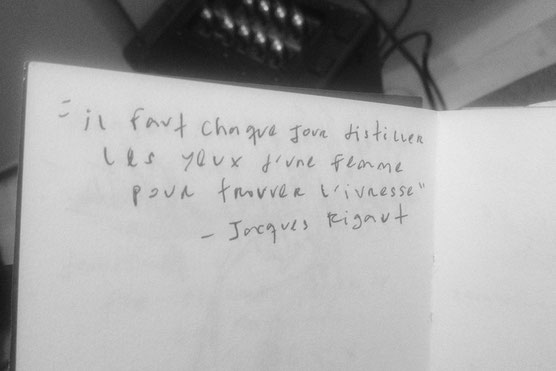 "il faut chaque jour distiller
les yeux d'une femme
pour trouver l'ivresse"
- Jacques Rigaut